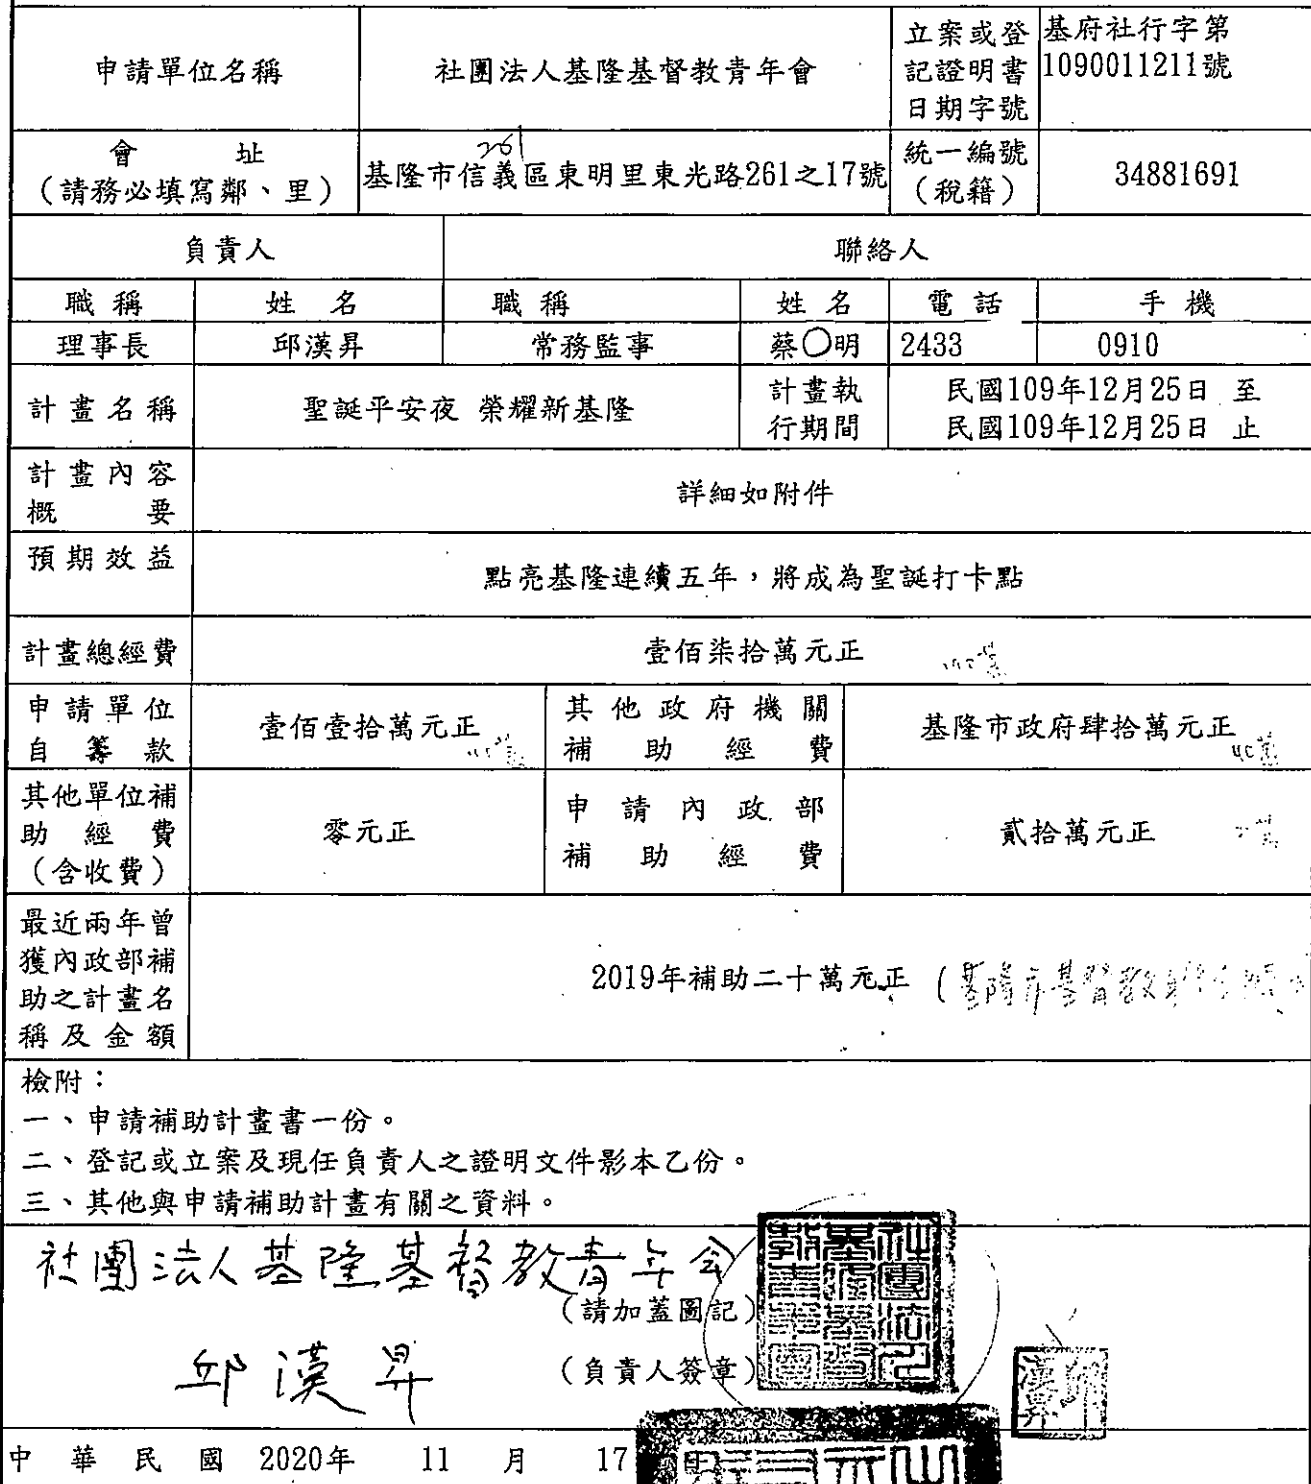 申請單位名稱 社團法人基隆基督教青年會 立案或登記證明書日期字號 基府社行字第1090011211號
會址（請務必填寫鄰、里） 基隆市信義區東明里東光路261之17號 統一編號（稅籍） 34881691
261
負責人 聯絡人
職稱 姓名 職稱 姓名 電話 手機
理事長 邱漢昇 常務監事 蔡○明 2433 0910
計畫名稱 聖誕平安夜 榮耀新基隆 計畫執行期間 民國109年12月25日 至
民國109年12月25日 止
計畫內容概要 詳細如附件
預期效益 點亮基隆連續五年，將成為聖誕打卡點
計畫總經費 壹佰柒拾萬元正
申請單位自籌款 壹佰壹拾萬元正 其他政府機關補助經費 基隆市政府肆拾萬元正
其他單位補助經費（含收費） 零元正 申請內政部補助經費 貳拾萬元正
最近兩年曾獲內政部補助之計畫名稱及金額 2019年補助二十萬元正
檢附：
一、申請補助計畫書一份。
二、登記或立案及現任負責人之證明文件影本乙份。
三、其他與申請補助計畫有關之資料。
社團法人基隆基督教青年会
（請加蓋圖記）
邱漢昇 （負責人簽章）
邱漢昇
中華民國 2020年 11 月 17 日